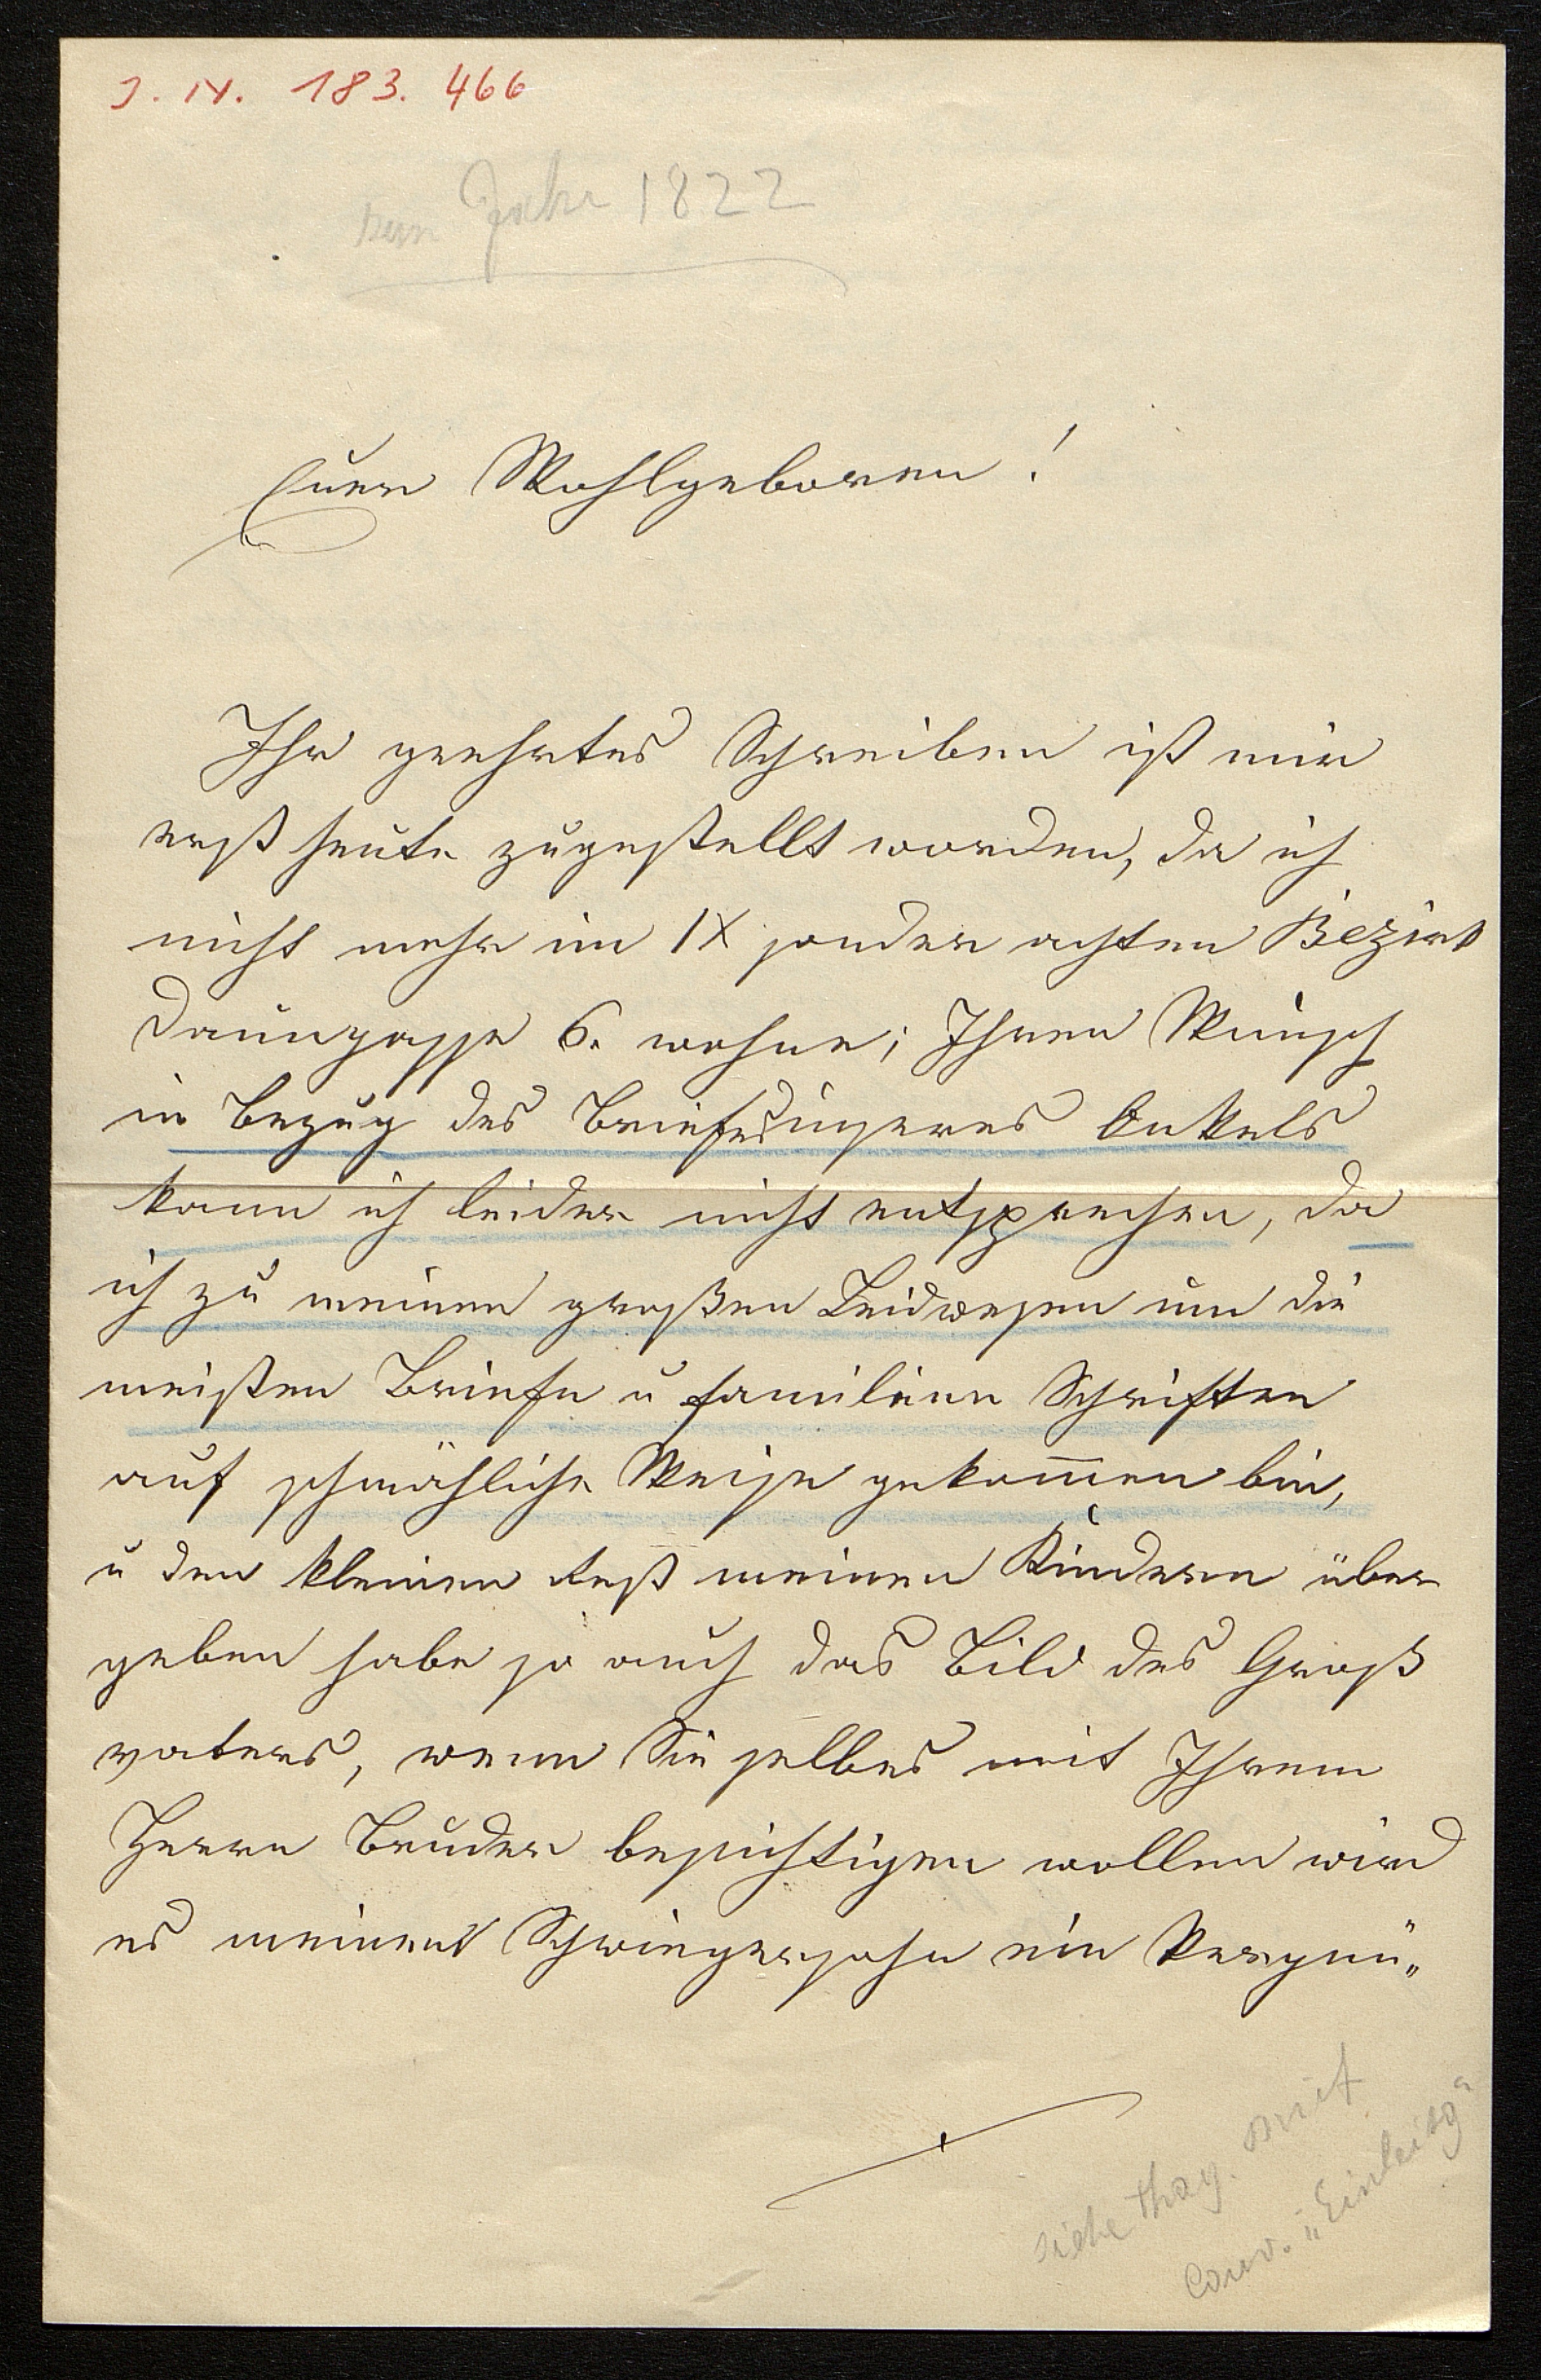 I. N. 183.466
zum Jahr 1822
Euer Wohlgeboren!
Ihr geehrtes Schreiben ist mir
erst heute zugestellt worden, da ich
nicht mehr im IX sonder achten Bezirk
Daungasse 6. wohne; Ihren Wunsch
in Bezug des Briefes unseres Onkels
kann ich leider nicht entsprechen, da
ich zu meinen großen Leidwesen um die
meisten Briefe u familiere Schriften
auf schmähliche Weise gekommen bin,
u den kleinen Rest meinen Kindern über
geben habe so auch das Bild des Groß
vaters, wenn Sie selbes mit Ihrem
Herrn Bruder besichtigen wollen wird
es meinem Schwiegersohn ein Vergnü„
siehe mit
Couv. „Einleitg“